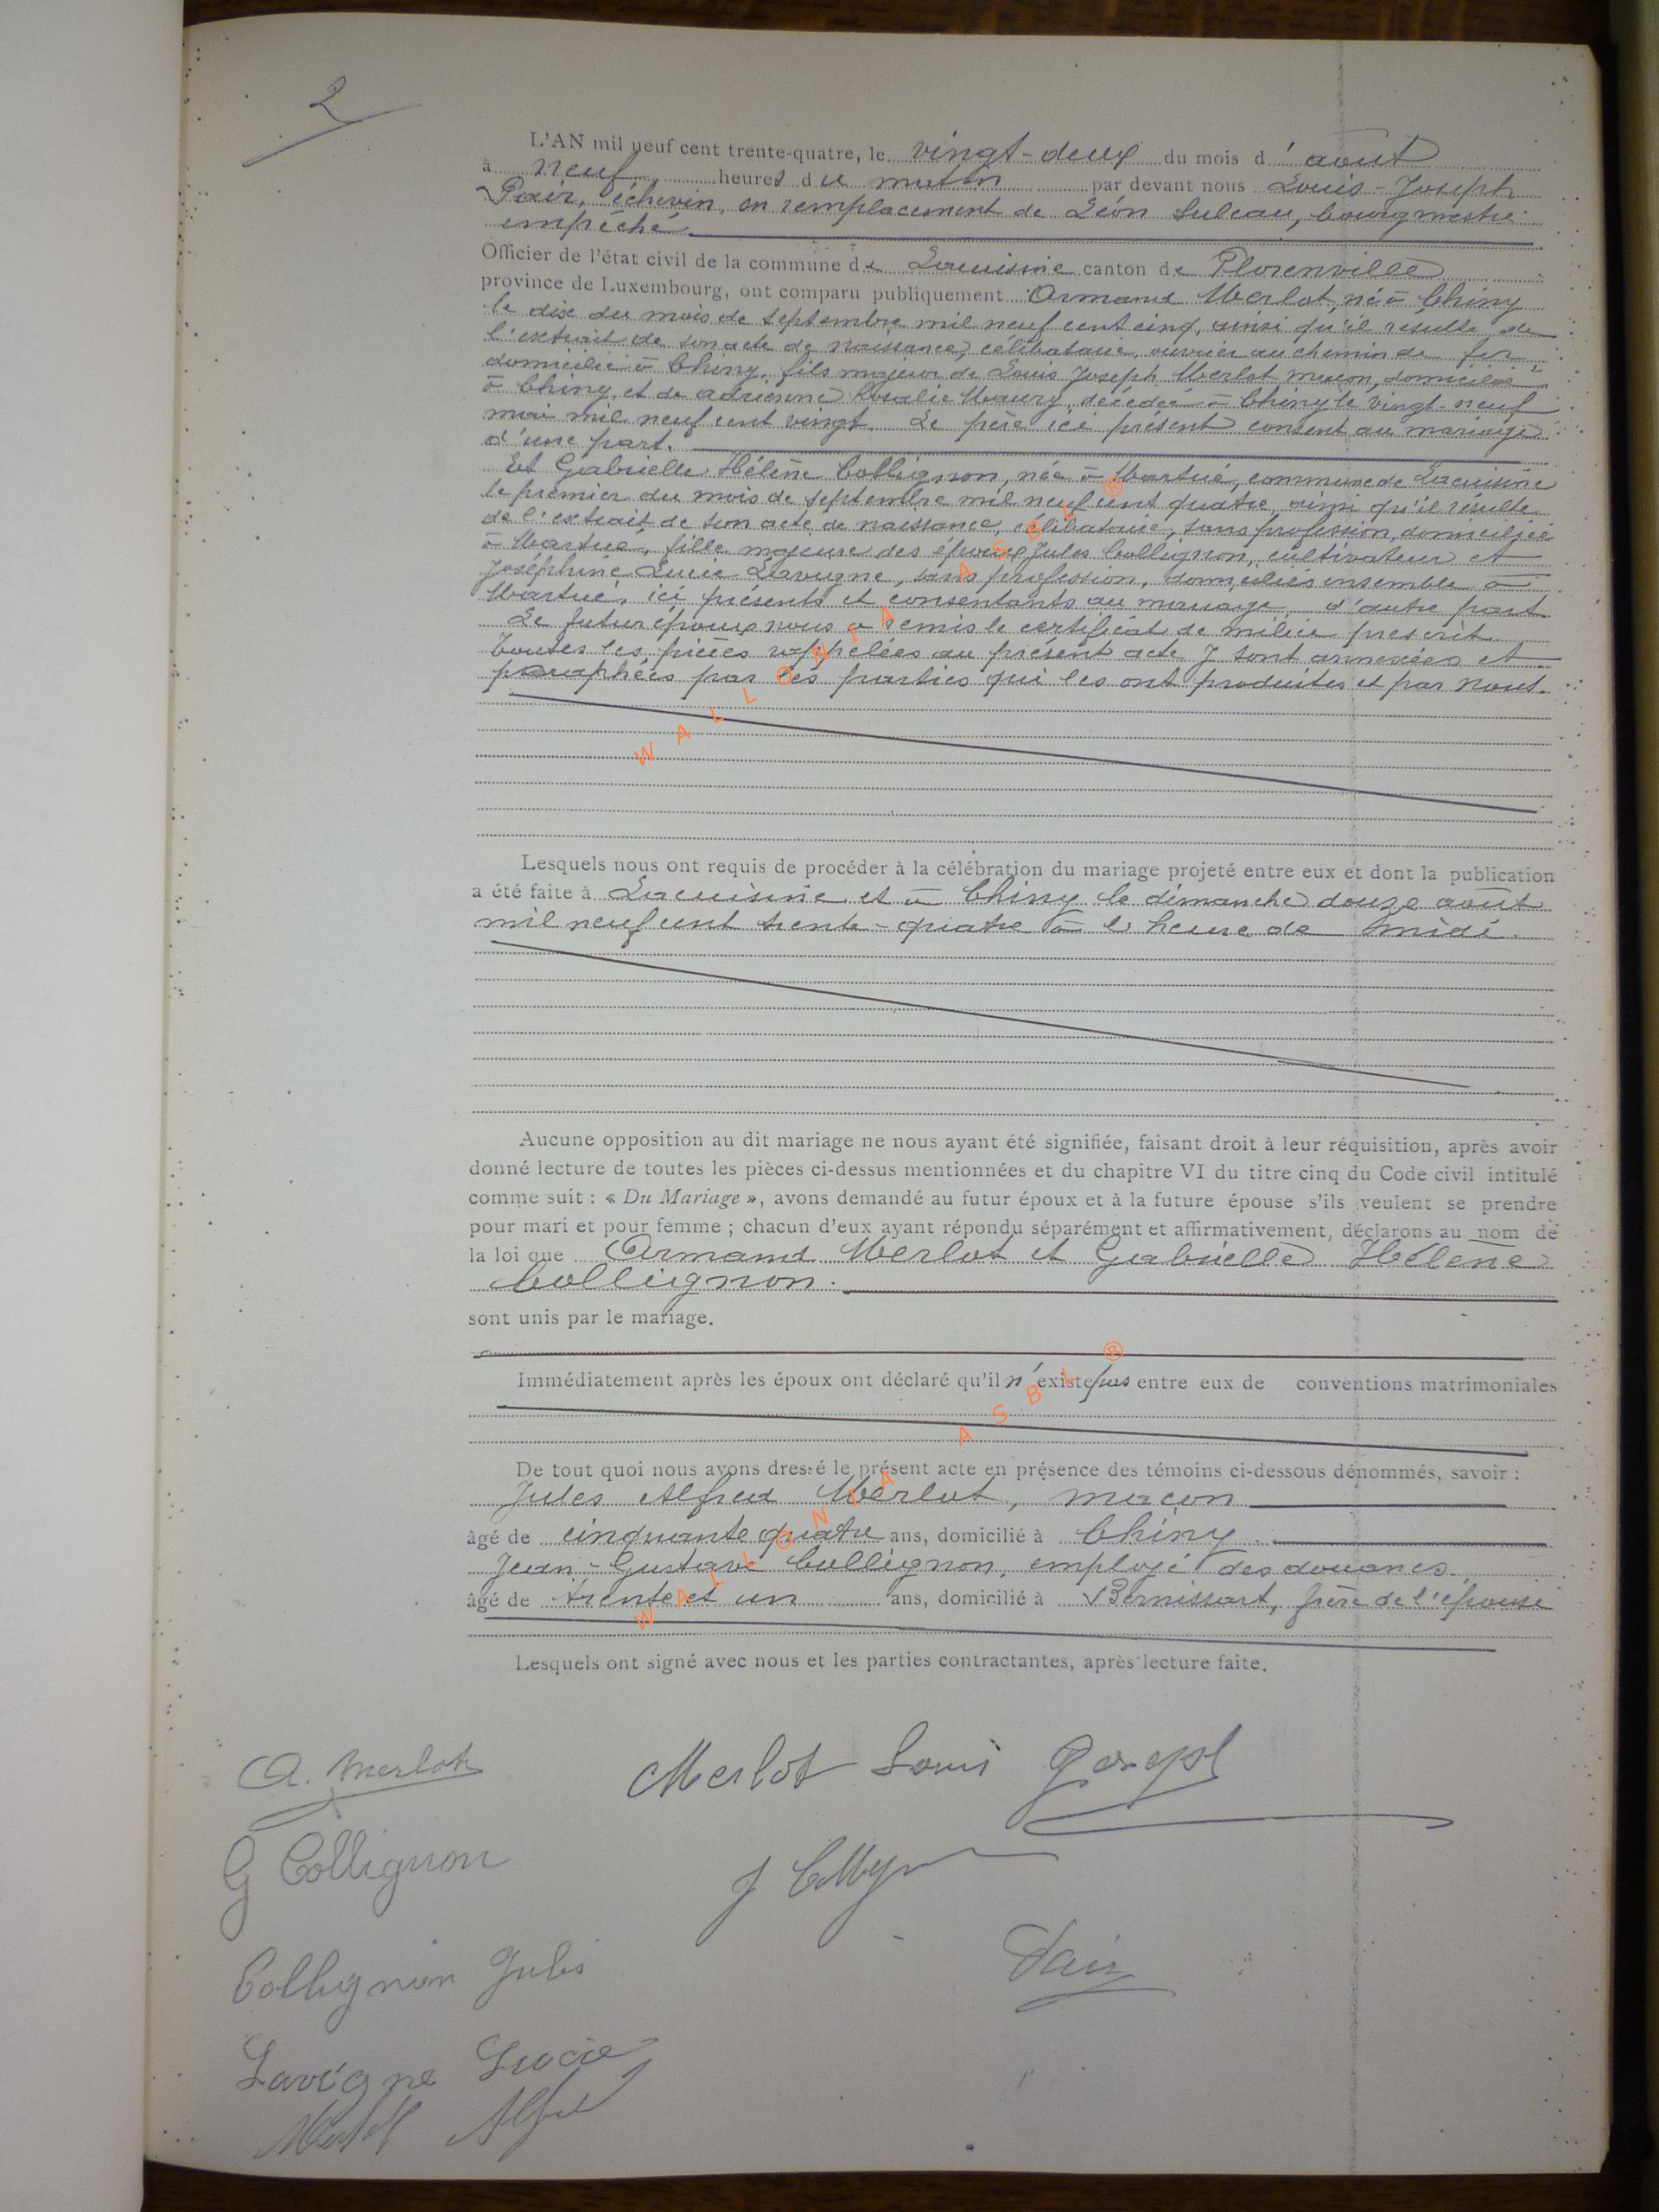 2
L'AN mil neuf cent trente-quatre, le vingt-deux du mois d'août
à neuf heures du matin par devant nous Louis-Joseph
Pair, échevin, en remplacement de Léon Suleau, bourgmestre
empêché.
Officier de l'état civil de la commune de Lacuisine canton de Florenville
province de Luxembourg, ont comparu publiquement Armand Merlot, né à Chiny
le dix du mois de septembre mil neuf cent cinq, ainsi qu'il résulte de
l'extrait de son acte de naissance, célibataire, ouvrier au chemin de fer
domicilié à Chiny, fils majeur de Louis Joseph Merlot maçon, domicilié
à Chiny et de Adrienne Rosalie Maury, décédée à Chiny le vingt-neuf
mai mil neuf cent vingt. Le père ici présent consent au mariage
d'une part.
Et Gabrielle Hélène Collignon, née à Martué, commune de Lacuisine
le premier du mois de septembre mil neuf cent quatre, ainsi qu'il résulte
de l'extrait de son acte de naissance, célibataire, sans profession, domiciliée
à Martué, fille majeure des époux Jules Collignon, cultivateur et
Joséphine Lucie Lavigne, sans profession, domiciliés ensemble à
Martué, ici présents et consentants au mariage, d'autre part
Le futur époux nous a remis le certificat de milice prescrit
Toutes les pièces rappelées au présent acte y sont annexées et
paraphées par les parties qui les ont produites et par nous.
WALLONIA ASBL®
Lesquels nous ont requis de procéder à la célébration du mariage projeté entre eux et dont la publication
a été faite à Lacuisine et à Chiny le dimanche douze août
mil neuf cent trente-quatre à l'heure de midi.
Aucune opposition au dit mariage ne nous ayant été signifiée, faisant droit à leur réquisition, après avoir
donné lecture de toutes les pièces ci-dessus mentionnées et du chapitre VI du titre cinq du Code civil intitulé
comme suit : « Du Mariage », avons demandé au futur époux et à la future épouse s'ils veulent se prendre
pour mari et pour femme ; chacun d'eux ayant répondu séparément et affirmativement, déclarons au nom de
la loi que Armand Merlot et Gabrielle Hélène
Collignon.
sont unis par le mariage.
Immédiatement après les époux ont déclaré qu'il n'existe pas entre eux de conventions matrimoniales
De tout quoi nous avons dressé le présent acte en présence des témoins ci-dessous dénommés, savoir :
Jules Alfred Merlot, maçon
âgé de cinquante quatre ans, domicilié à Chiny
Jean-Gustave Collignon, employé des douanes
âgé de trente et un ans, domicilié à Bernissart, frère de l'épouse
WALLONIA ASBL®
Lesquels ont signé avec nous et les parties contractantes, après lecture faite.
A. Merlot
Merlot Louis Joseph
G Collignon
Collignon Jules
Pair
Lavigne Lucie
Merlot Alfred